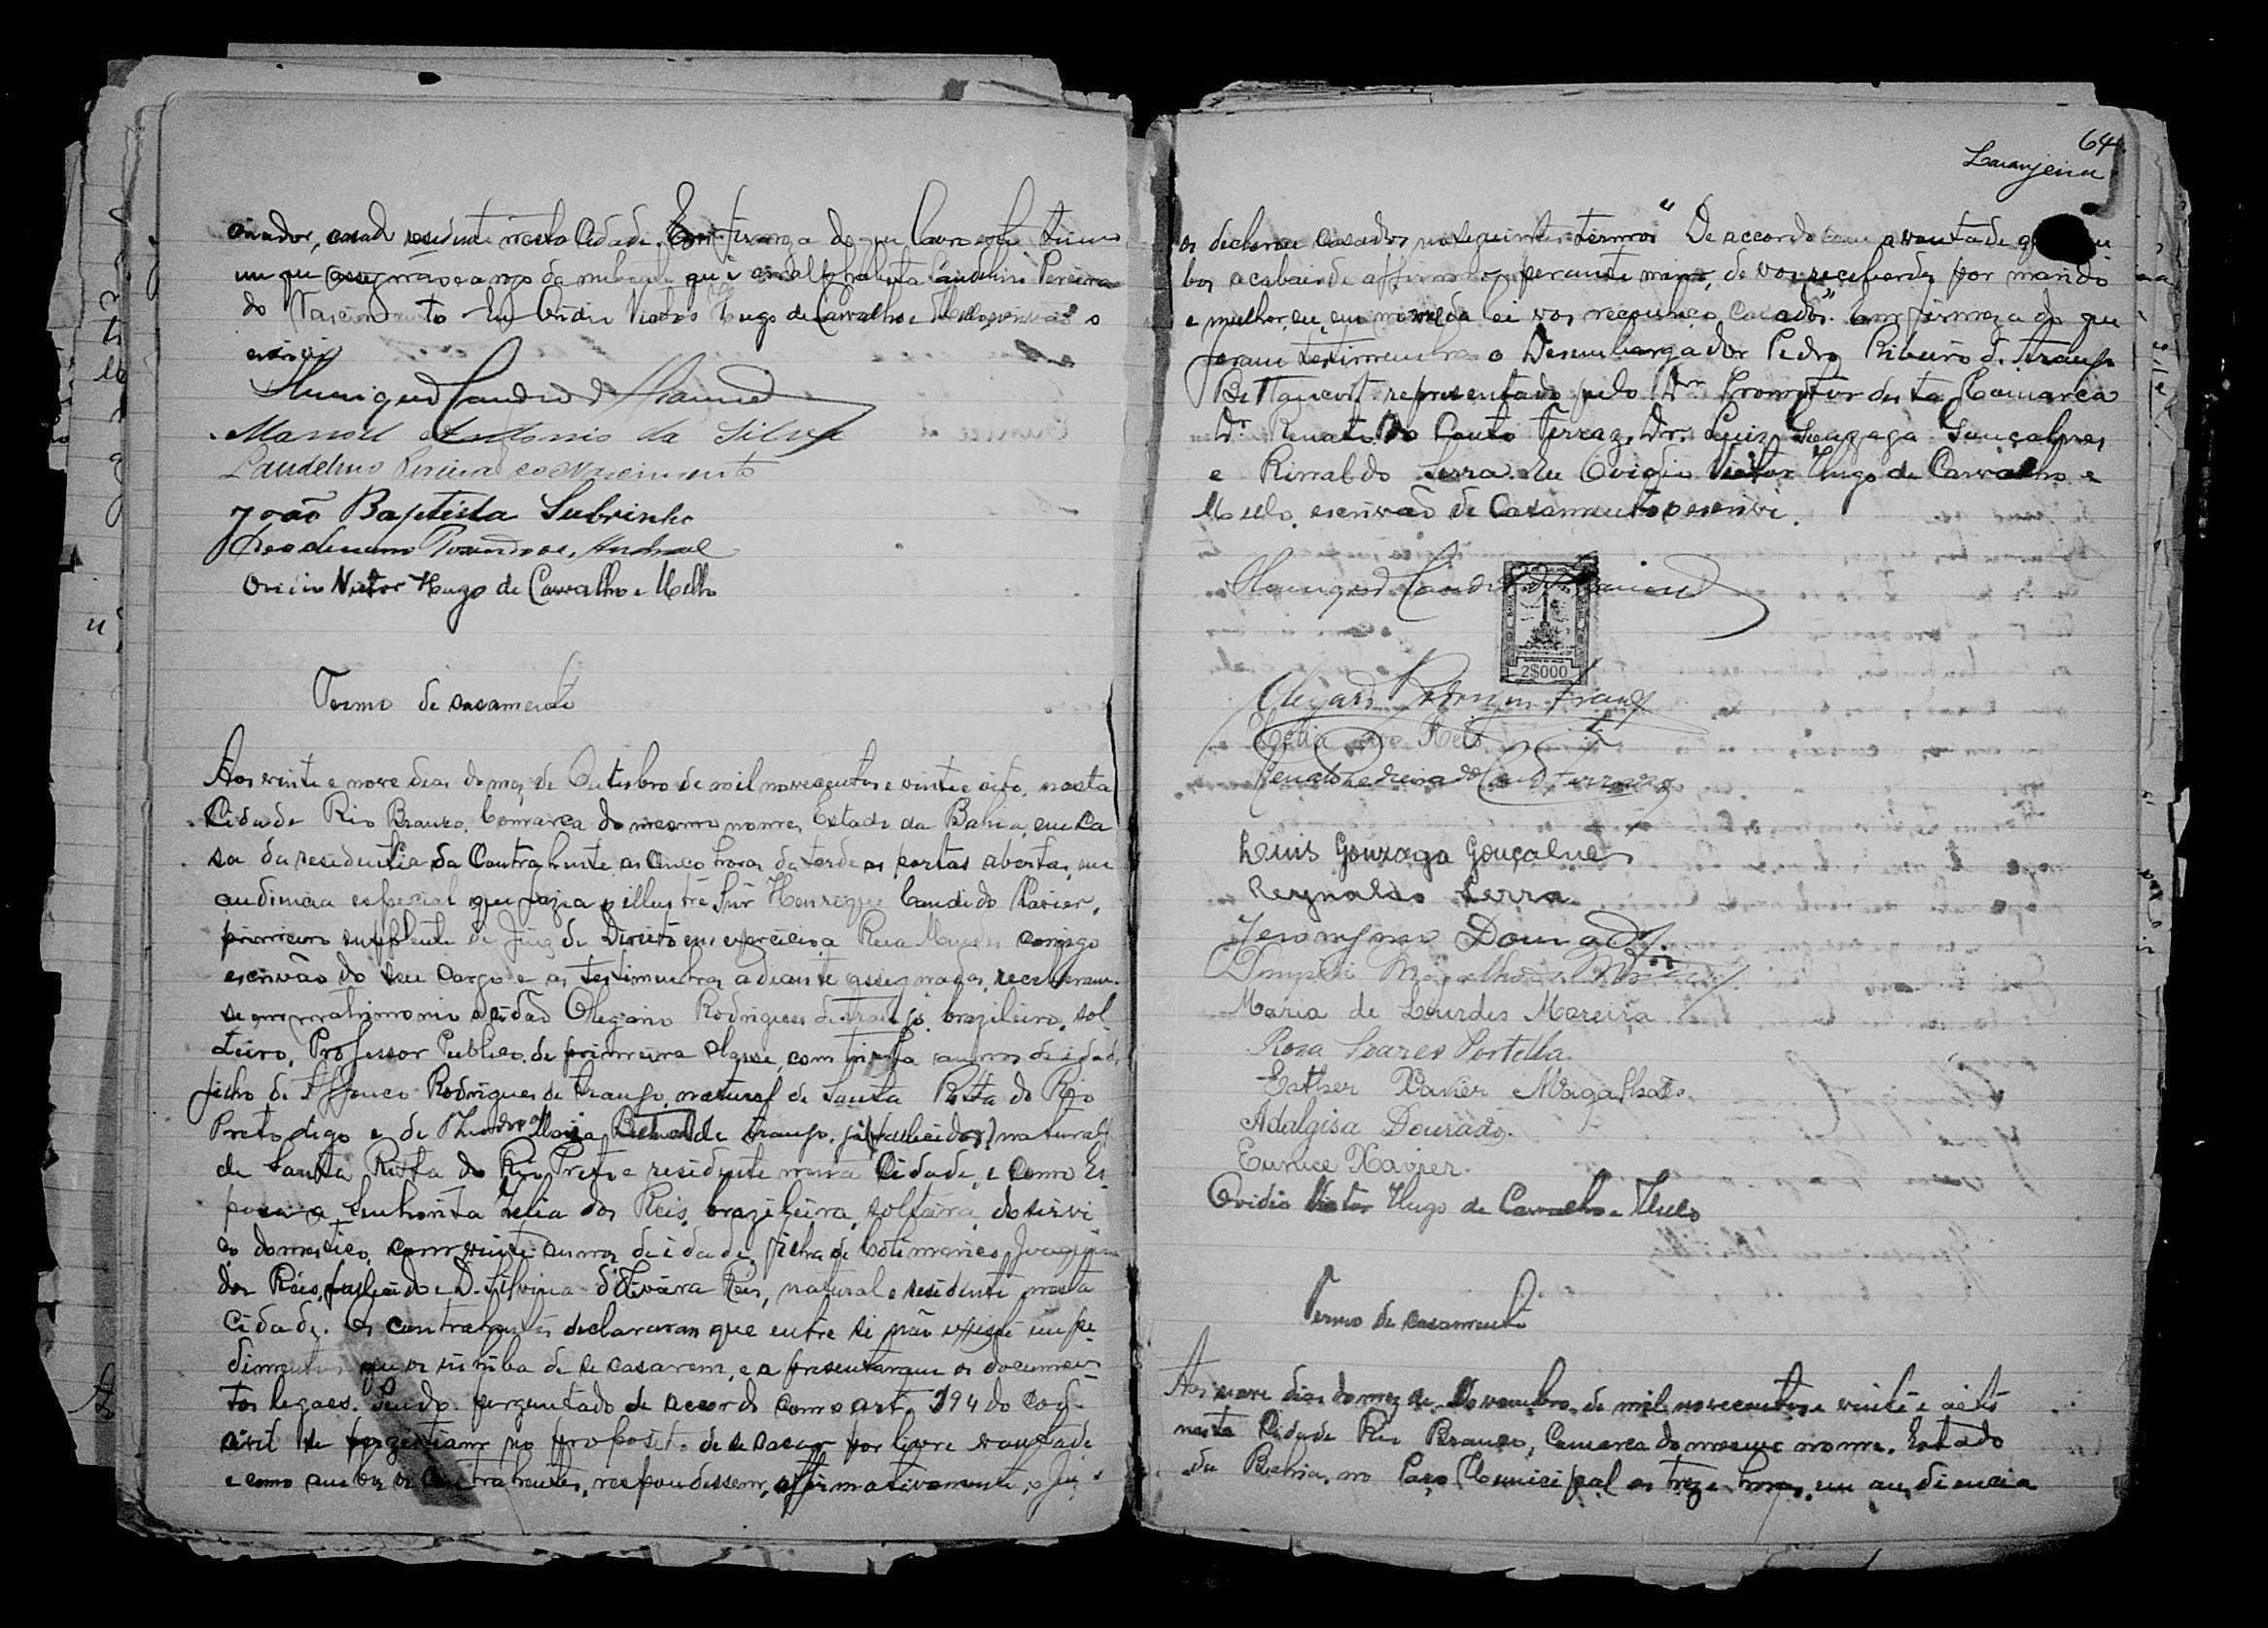 criador, casado residente nesta Cidade. Em firmeza do que lavro este termo
em que assignão e a rogo da nubente que é analphabeta Laudelino Pereira
do Nascimento Eu Ovidio Victor Hugo de Carvalho e Mello, escrivão o
escrevi
Henrique Candido
Manoel Antonio da Silva
Laudelino Pereira do Nascimento
João Baptista Subrinho
Ovidio Victor Hugo de Carvalho e Mello
Termo de casamento
Aos vinte e nove dias do mez de Outubro de mil novescentos e vinte e oito, nesta
Cidade Rio Branco, Comarca do mesmo nome, Estado da Bahia, em ca
sa da residentia da Contrahente as cinco horas da tarde as portas abertas, em
audiencia especial que fazia o illustre Snr Henrique Candido Xavier,
primeiro supplente de Juiz de Direito em exercicio comigo
escrivão do seu cargo e as testimunhas adiante assignadas, receberam
se em matrimonio o cidadão Olegario Rodrigues de Araujo, brazileiro, sol
teiro, Professor Publico de primeira classe, com trinta annos de idade
filho de Affonço Rodrigues de Araujo, natural de Santa Ritta do Rio
Preto digo e de Maria de Araujo, já (fallecidos) natural
de Santa Ritta do Rio Preto e residente nesta Cidade, e como Es
posa a Senhorita Zelia dos Reis, brazileira, solteira, do servi
ço domestico, com vinte annos de idade, filha de Joaquim
dos Reis, fallecido e D. Silvina d'Oliveira Reis, natural e residente nesta
Cidade. Os contrahentes declararam que entre si não existe impe
dimentos que os iniba de se casarem, e apresentaram os documen
tos legaes. Sendo perguntado de accordo com o art. 194 do Cod.
civil se persistiam no proposito de se casar por livre vontade
e como ambos os contrahentes, respondessem, affirmativamente, o Juiz
64
Laranjeira
os declarou casados nos seguintes termos "De accordo com a vontade que
bos acabais de affirmar perante mim, de vos receberdes por marido
e mulher, eu, em nome da lei vos reconheço casados". Em firmeza do que
foram testimunhas o Desembargador Pedro Ribeiro de Araujo
Bittancort representado pelo Dr. Promotor desta Comarca
Dr. Renato do Couto Ferraz, Dr. Luiz Gonzaga Gonçalves,
e Rinaldo Serra. Eu Ovidio Victor Hugo de Carvalho e
Mello, escrivão de Casamentos o escrivi.
Henrique Candido
2$000
Olegario Rodrigues Araujo
Zelia dos Reis
Renato Pedreira do Couto Ferraz
Luis Gonzaga Gonçalves
Reynaldo Serra
Jeronymo Dourado
Magalhães
Maria de Lourdes Moreira
Rosa Soares Portella
Esther Xavier Magalhães
Adalgisa Dourado.
Eunice Xavier.
Ovidio Victor Hugo de Carvalho e Mello
Termo de casamento
Aos nove dias do mez de Novembro de mil novecentos e vinte e oito
nesta Cidade Rio Branco, Comarca do mesmo nome, Estado
da Bahia, no Paço Municipal as treze horas, em audiencia